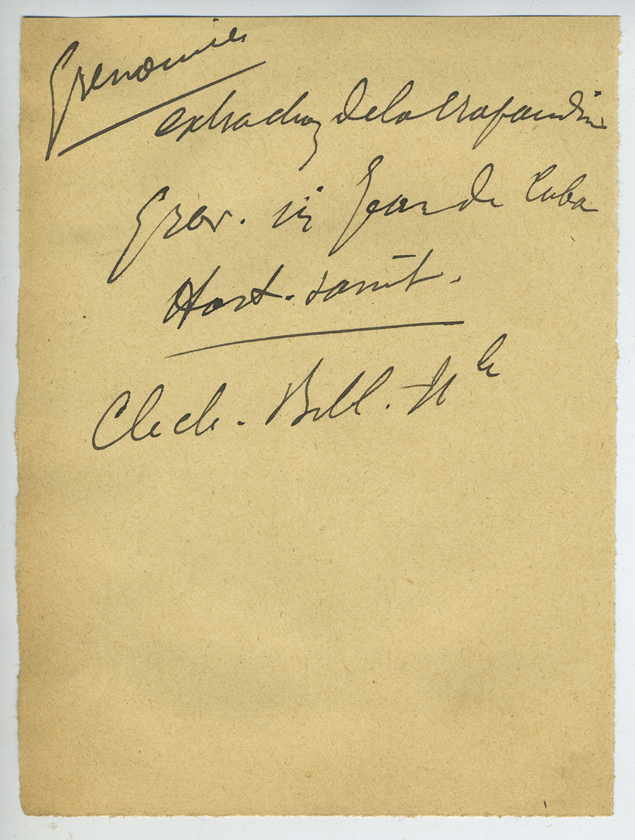 Grenouille
extraction de la crapaudine
Grav. in Jean de Cuba
Hort. sanit.
Clich. Bibl. Nle